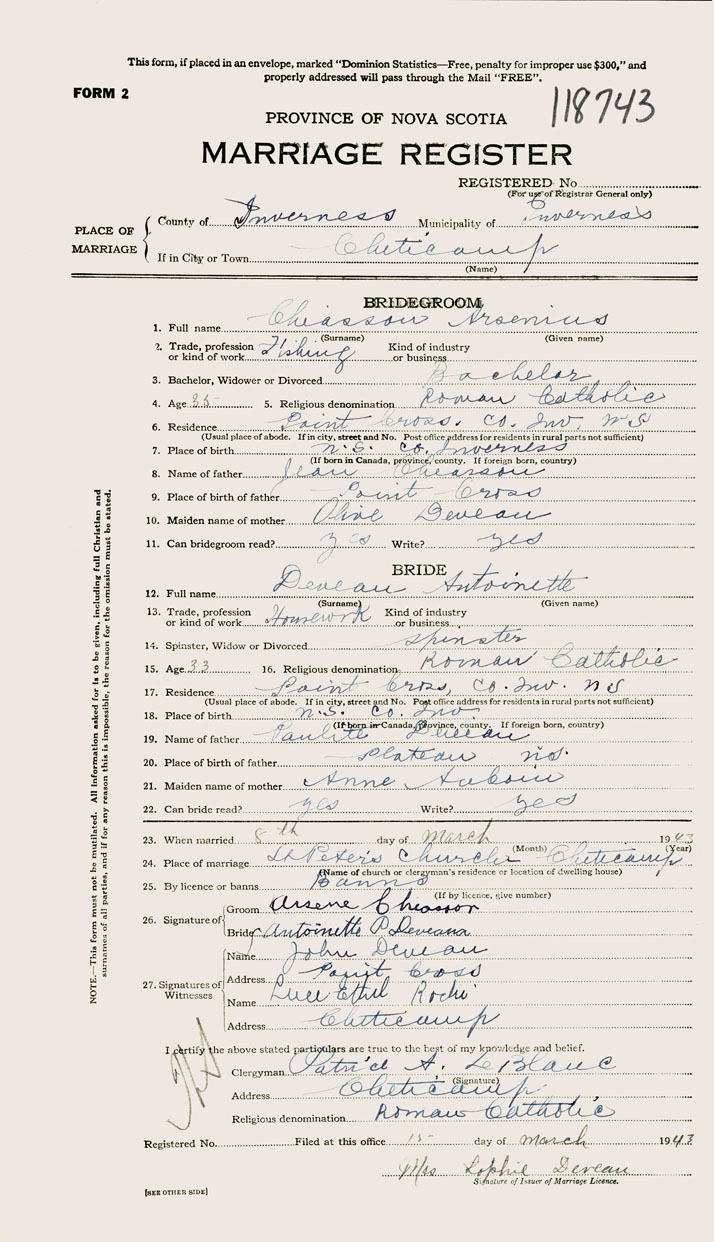 This form, if placed in an envelope, marked "Dominion Statistics—Free, penalty for improper use $300," and
properly addressed will pass through the Mail "FREE".
FORM 2
118743
PROVINCE OF NOVA SCOTIA
MARRIAGE REGISTER
REGISTERED No
(For use of Registrar General only)
PLACE OF MARRIAGE
County of Inverness Municipality of Inverness
If in City or Town Cheticamp
(Name)
BRIDEGROOM
1. Full name Chiasson Arsenius
(Surname) (Given name)
2. Trade, profession or kind of work Fishing Kind of industry or business
3. Bachelor, Widower or Divorced Bachelor
4. Age 35 5. Religious denomination Roman Catholic
6. Residence Point Cross. Co. Inv. N S
(Usual place of abode. If in city, street and No. Post office address for residents in rural parts not sufficient)
7. Place of birth N.S. Co. Inverness
(If born in Canada, province, county. If foreign born, country)
8. Name of father Jean Chiasson
9. Place of birth of father Point Cross
10. Maiden name of mother Olive Deveau
11. Can bridegroom read? yes Write? yes
BRIDE
12. Full name Deveau Antoinette
(Surname) (Given name)
13. Trade, profession or kind of work Housework Kind of industry or business
14. Spinster, Widow or Divorced spinster
15. Age 33 16. Religious denomination Roman Catholic
17. Residence Point Cross, Co. Inv. N S
(Usual place of abode. If in city, street and No. Post office address for residents in rural parts not sufficient)
18. Place of birth N.S. Co. Inv
(If born in Canada, province, county. If foreign born, country)
19. Name of father Deveau
20. Place of birth of father Plateau N.S.
21. Maiden name of mother Anne Aucoin
22. Can bride read? yes Write? yes
23. When married 8th day of March 1943
(Month) (Year)
24. Place of marriage St Peter's Church Cheticamp
(Name of church or clergyman's residence or location of dwelling house)
25. By licence or banns Banns
(If by licence, give number)
26. Signature of
Groom Arsene Chiasson
Bride Antoinette P. Deveau
27. Signatures of Witnesses
Name John Deveau
Address Point Cross
Name Luce Ethel Roche
Address Cheticamp
I certify the above stated particulars are true to the best of my knowledge and belief.
Clergyman Patrick A. LeBlanc
(Signature)
Address Cheticamp
Religious denomination Roman Catholic
Registered No. Filed at this office 15 day of March 1943
Mrs Sophie Deveau
Signature of Issuer of Marriage Licence.
[SEE OTHER SIDE]
NOTE.—This form must not be mutilated. All information asked for is to be given, including full Christian and
surnames of all parties, and if for any reason this is impossible, the reason for the omission must be stated.